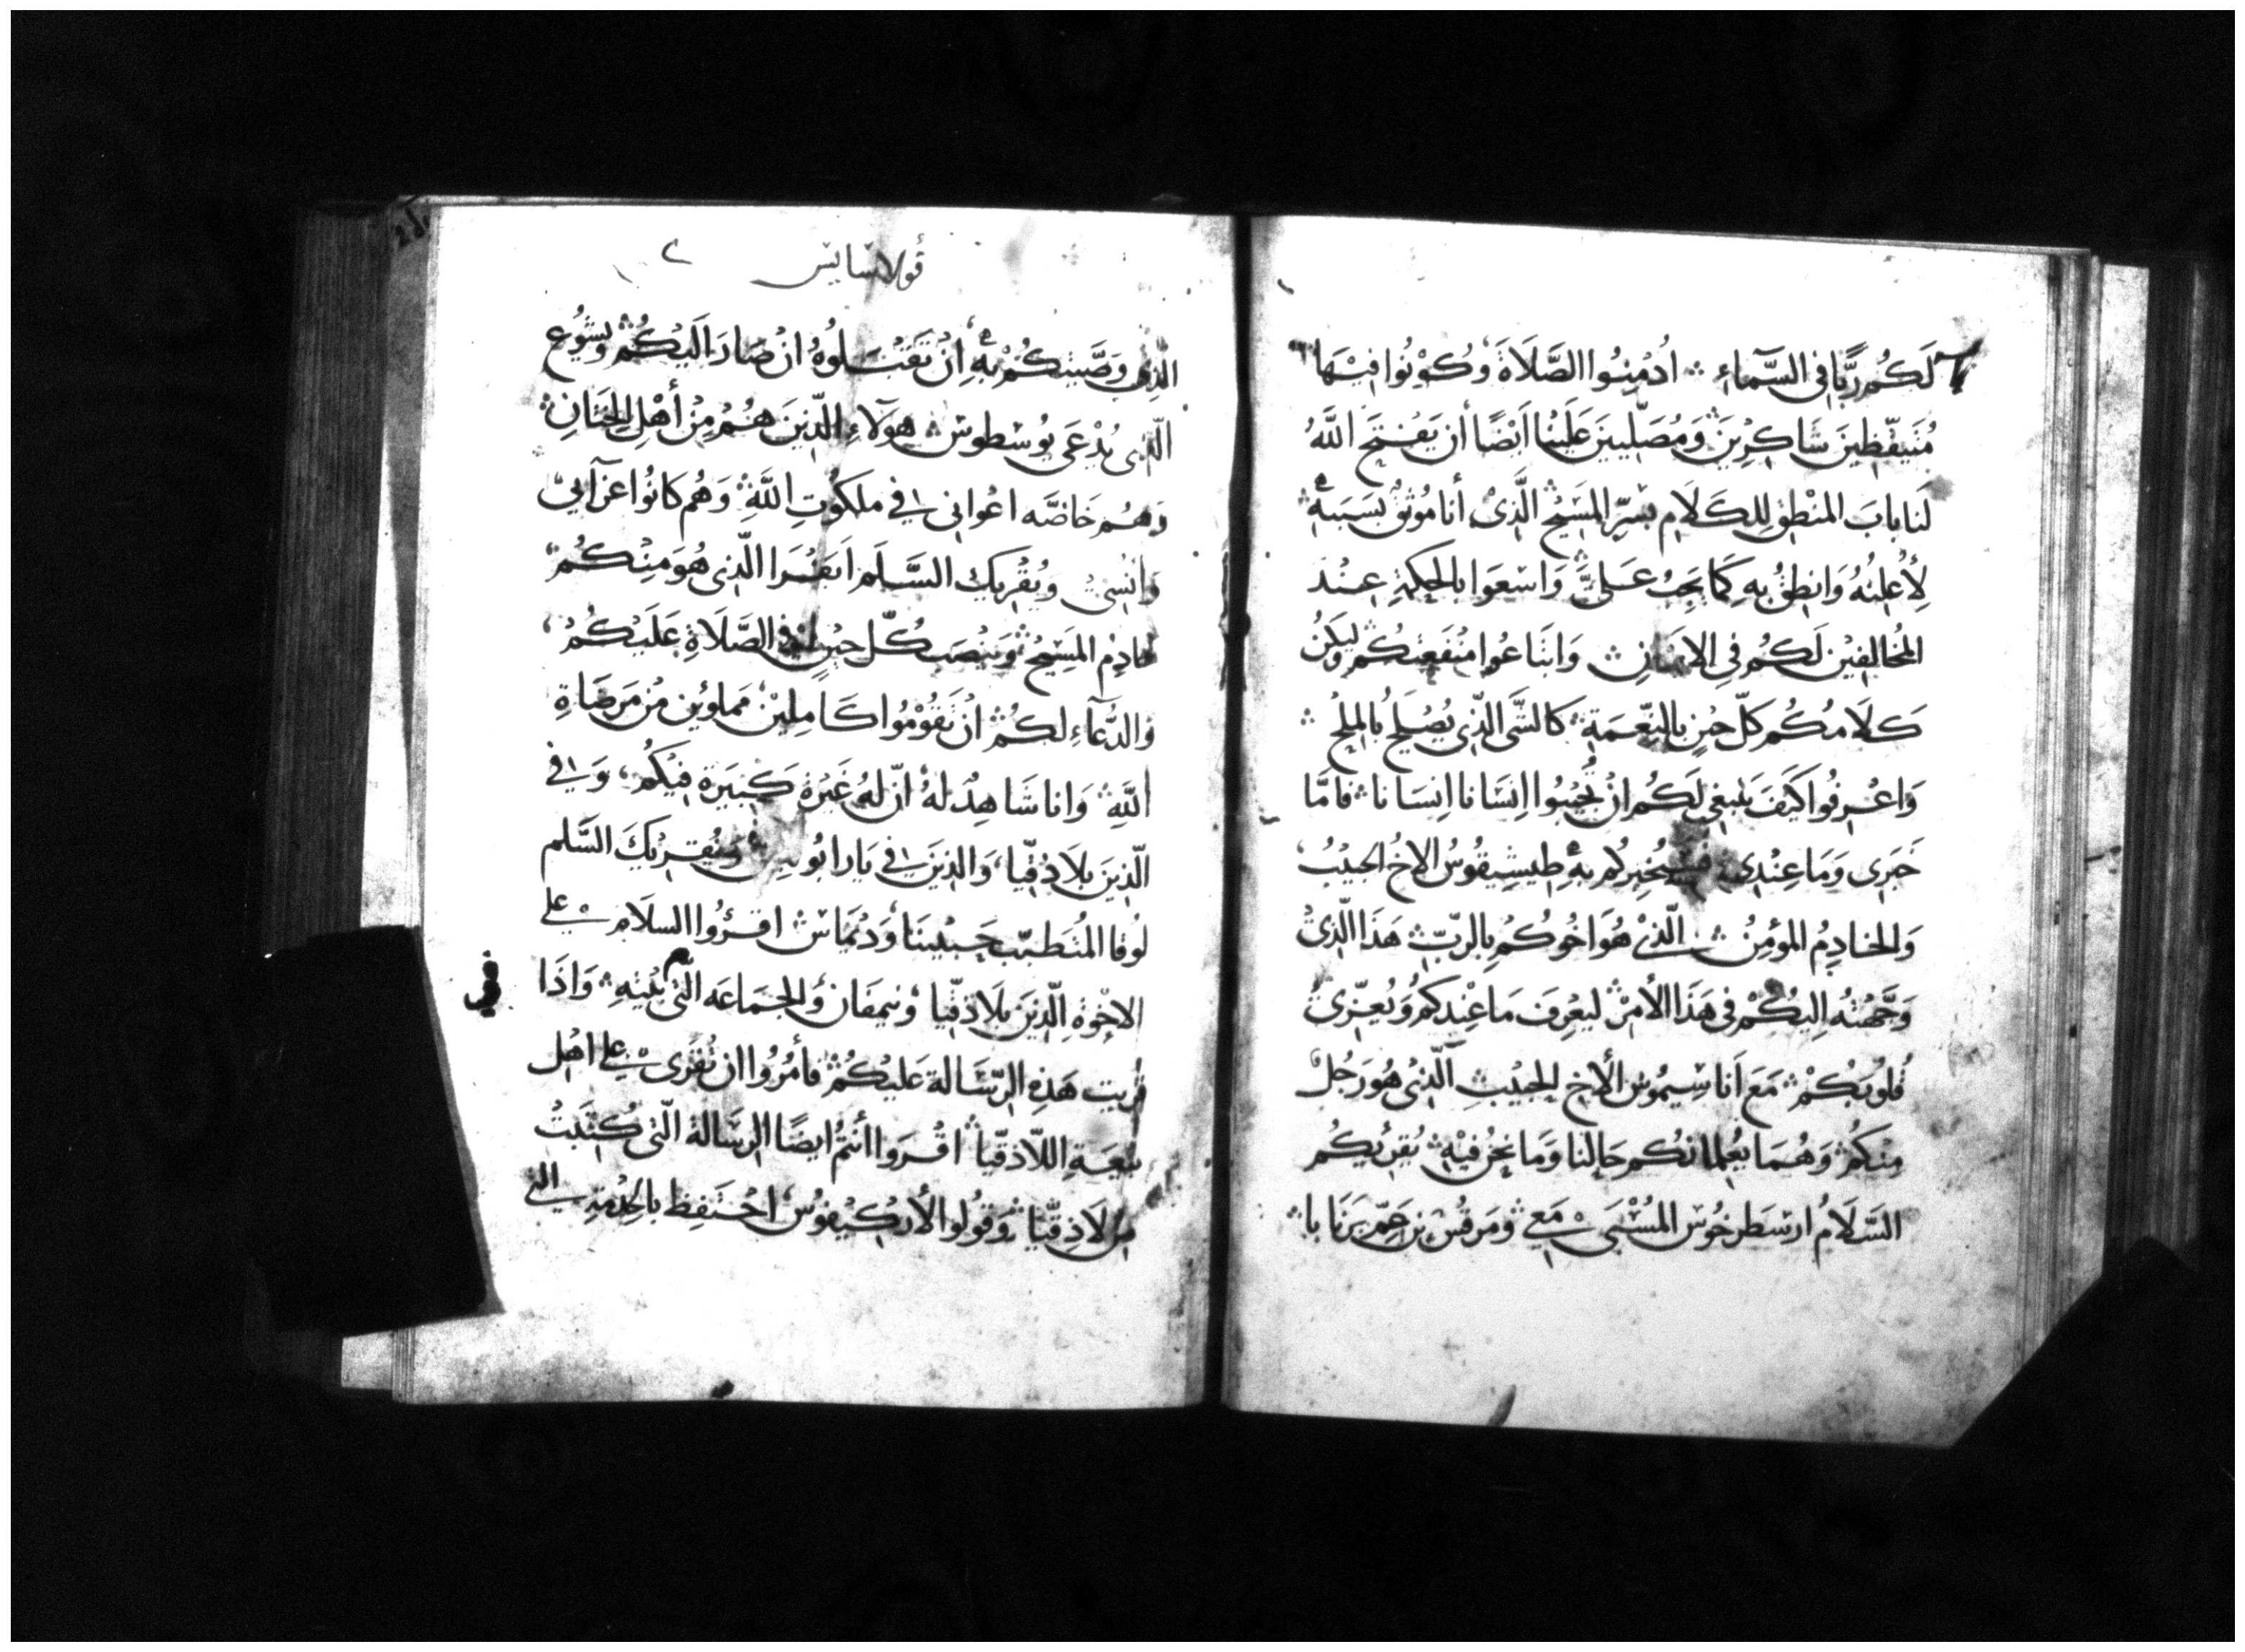 لَكُم رَبًّا فى السَّمآءِ ۞ ادْمِنُوا الصَّلَاةَ وَكُوْنُوا فِيْهَا
مُتَيَقّظِينَ شَاكِرِيْنَ وَمُصَلّيينَ عَلَيْنا اَيْضًا أن يَفْتَحَ اللَّهُ
لَنا بابَ المنْطِقِ لِلكَلَامِ بِسِرِّ المَسِيْحِ الَّذِىْ أنا مُوْثَقٌ بسَبَبهِ
لِأُعلِنُهُ وَانطِقُ بِهِ كَمَا يَجِبُ عَلىَّ وَاسْعَوا بالحِكمَةِ عِنْدَ
المُخالِفِيْن لَكُم فِى الايمانِ وَابْتَاعُوا مَنْفَعِتكُم وليَكُنْ
كَلَامُكُم كلّ حِيْنٍ بالنِّعْمَةِ كالشَّى الذّى يُصْلَحُ بالمِلْحِ
وَاعْرِفُوا كَيْفَ يَنْبغِى لَكُم ان تُجِيْبُوا اِنسَانا اِنسَانا فامَّا
خَبَرِى وَمَا عِنْدِى فسَيُخْبِركُم بهِ طِيشِيقُوسُ الاخُ الحبِيْبُ
وَالخادِمُ المؤمِنُ الّذىْ هُوَ اخُوكُم بِالربِّ هَذَا الّذِىْ
وَجَّهْتُه اِليْكُمْ فى هَذَا الأمْرِ ليَعْرِفَ مَا عِنْدكُم وَيُعَزِّىْ
قُلوبَكُمْ مَعَ اَناسِيمُوسَ الأخ الحبِيْبِ الّذِىْ هُوَ رَجُلٌ
مِنْكُم وَهُمَا يُعْلِمانكُم حَالنا وَمَا نحنُ فيْهِ يُقرِيكُم
السَّلَامُ ارسْطَرخُوس المُسْبَى مَعِي وَمَرقُسُ بن عَمِّ بَرنَابا
قولاسايس
الذى وَصَّيتكُمْ بهِ اِنْ تَقْبَلوهُ ان صَارَ اَليْكُمْ ويَشُوْع
الّذى يُدْعَى يُوسْطوس هؤلَاءِ الّذِينَ هُمُ مِنْ أهْلِ الخِتَانِ
وَهُم خَاصَّه اعْوانى فِي ملكُوتِ اللَّهِ وَهُم كانُوا عزآيىْ
وَانْسِىْ وَيُقْرِيك السَّلَم اَبَفْرَا الّذى هُوَ مِنْكُمْ
خادِم المَسِيْحِ وَينْصَب كُلّ حِيْنٍ فى الصَّلَاةِ عَلَيْكُمْ
وَالدُّعآءِ لكُمْ انْ تَقُوْمُوا كَامِلِيْن مملوئين مْن مَرضَاةِ
اللَّهِ وَانا شَاهِدٌ لهُ انّ لهُ غَيْرَةً كَبِيَرة فيْكُم وَفي
الّذِيَن بلَادُقِيّا وَالذِينَ فِي يَارابُوليس وَيُقْرِيكَ السَّلم
لُوقا المُتَطبّب حَبيْبنَا وَدِيَماسْ اقرؤُوا السلَام على
الاخْوَةِ الّذِيَن بلَادْقِيّا وَنيمفَان وَالجمَاعَه الّتى بَيْتِهِ وَاذَا
قُرِيت هَذِه الرّسَالة عَليْكُمْ فأمُرُوا ان تُقْرَى على اهْل
بيْعَةِ اللاَّذقِيّا اقْرَوا أنتُم ايضًا الرسَالة الّتى كُتِبَتْ
مِن لَاذِقيّا وَقُولوا لأركِيْفُوسْ احْتَفِظ بالخِدْمَةِ التى